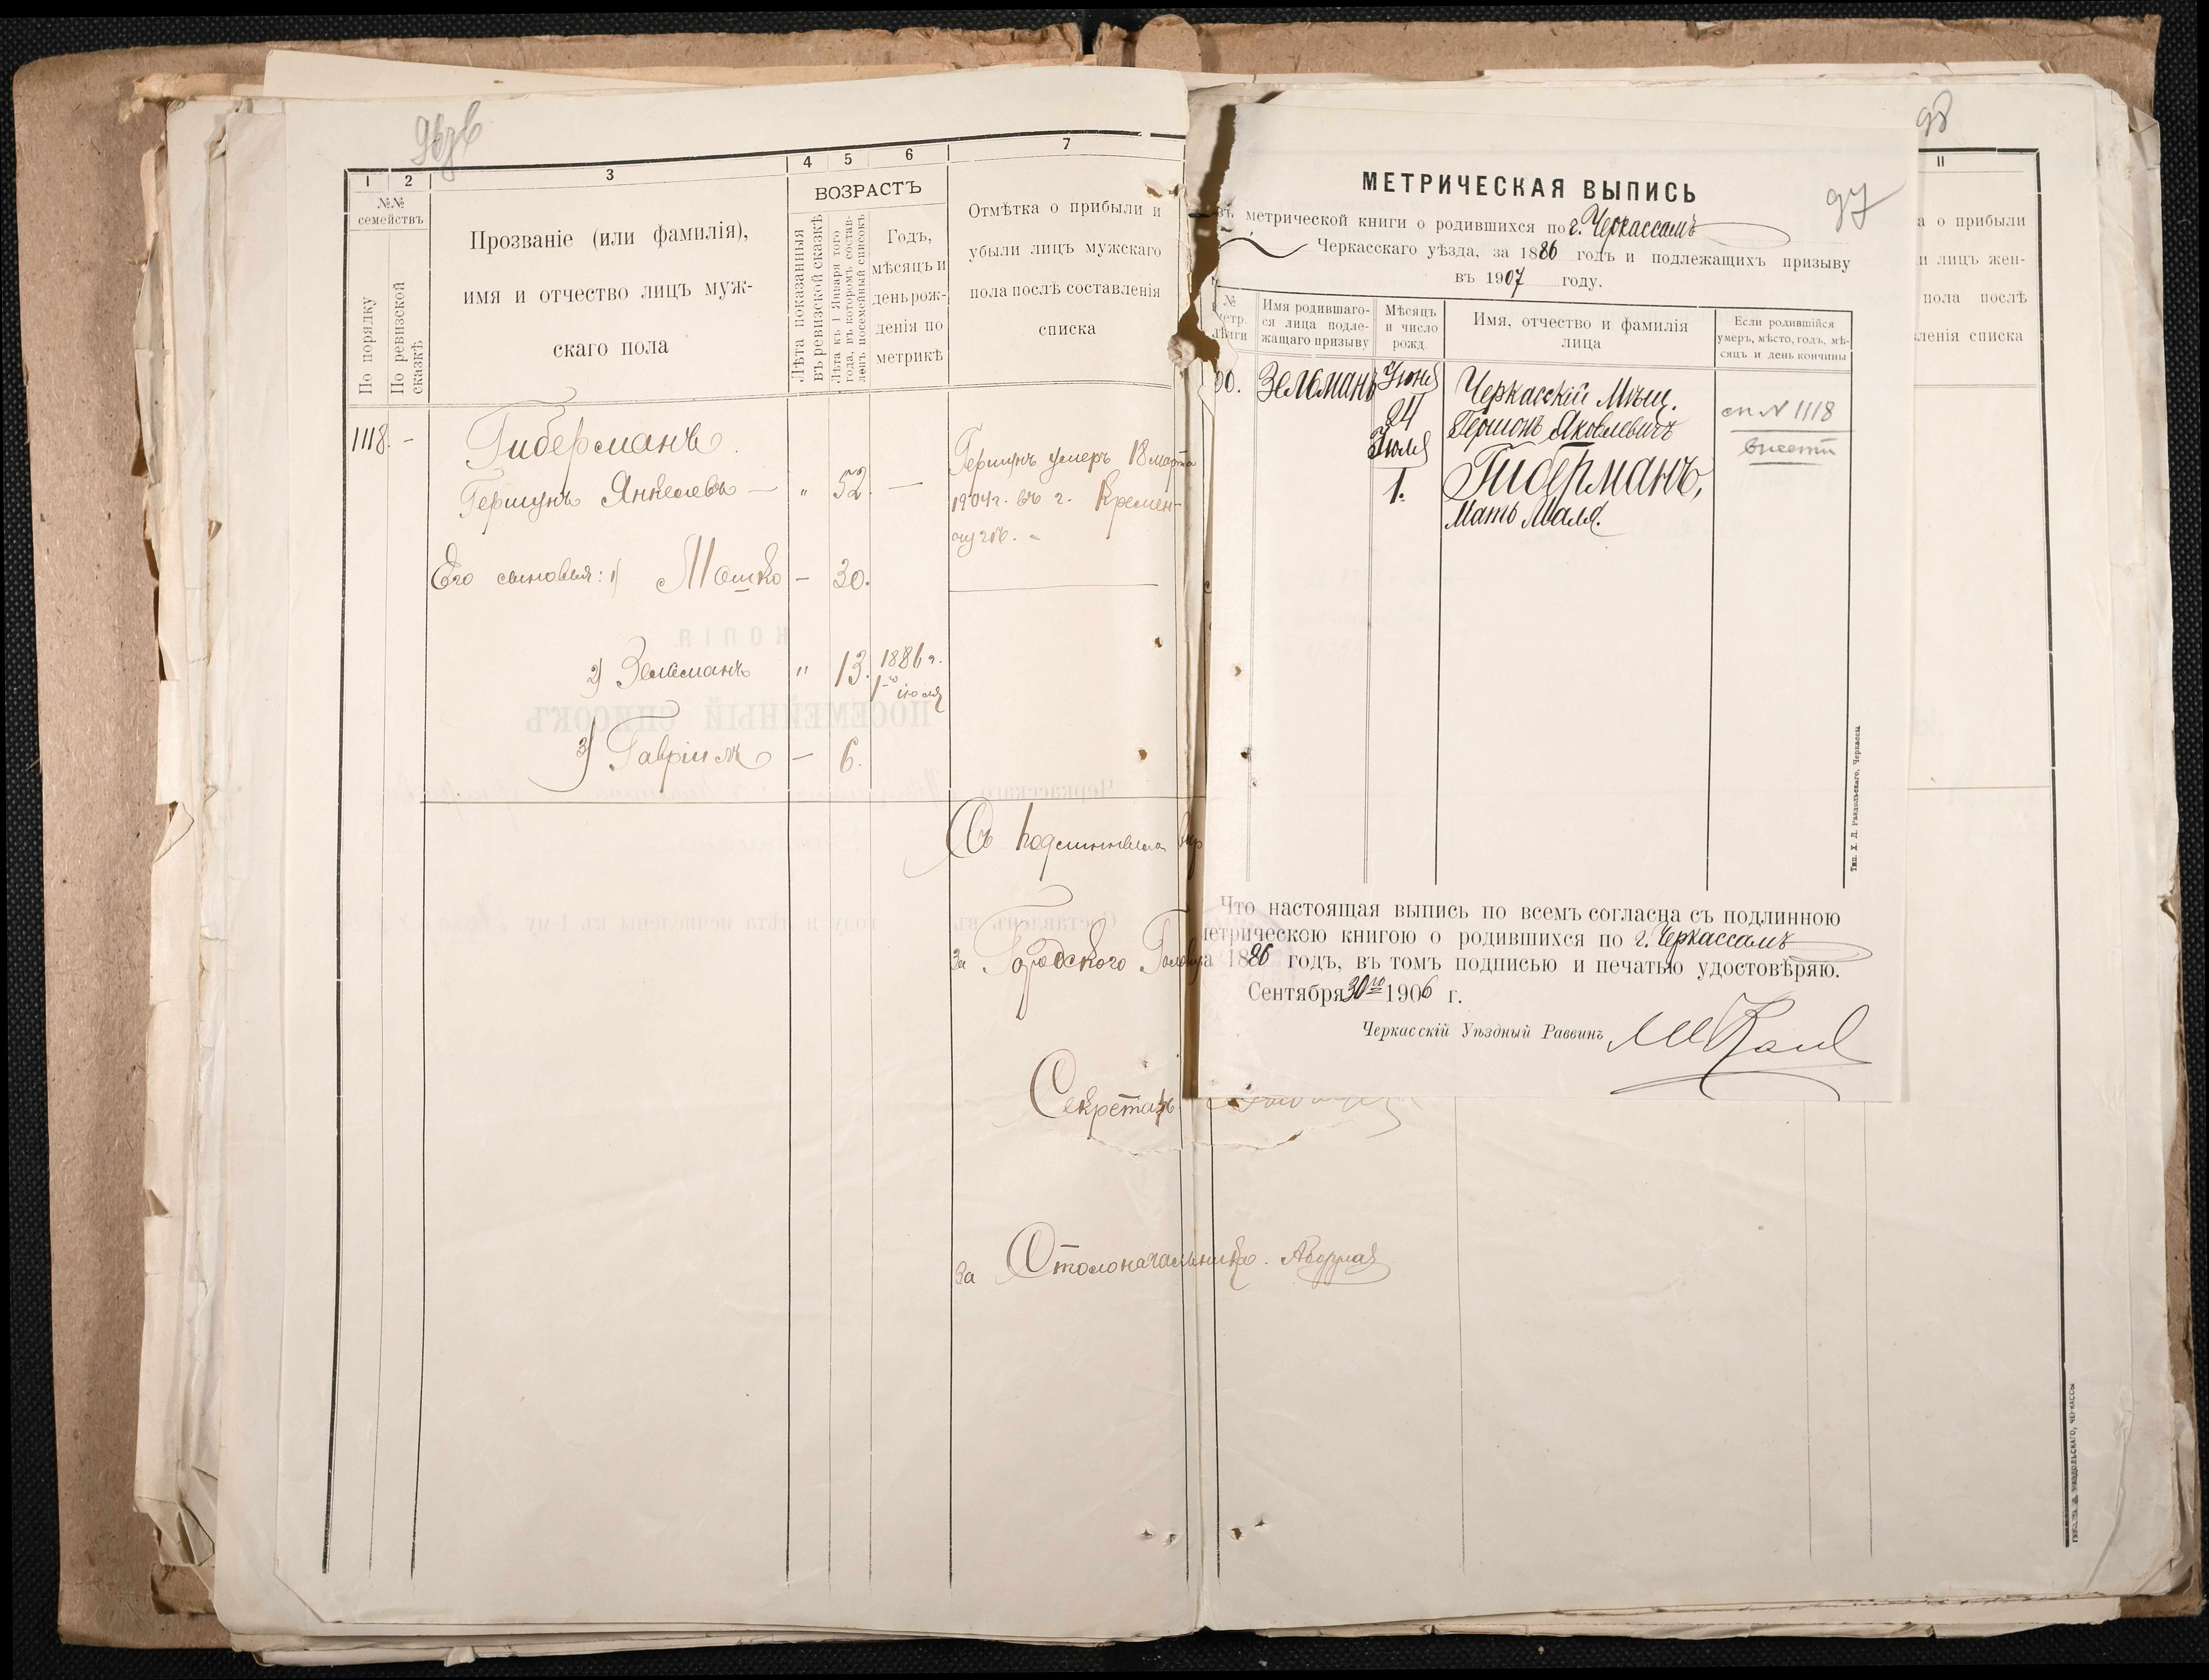 1 2 3 4 5 6 7
№№ семействъ
По порядку
По ревизской сказкѣ
Прозваніе (или фамилія),
имя и отчество лицъ муж-
скаго пола
ВОЗРАСТЪ
Лѣта показанныя
въ ревизской сказкѣ
Лѣта къ 1 Января того
года, въ которомъ состав-
ленъ посемейный списокъ
Годъ,
мѣсяцъ и
день рож-
денія по
метрикѣ
Отмѣтка о прибыли и
убыли лицъ мужскаго
пола послѣ составленія
списка
1118. -
Гиберманъ
Гершунъ Янкелевъ — " 52. —
Гершунъ умеръ 18 марта
1904 г. въ г. Кремен-
чугѣ.
Его сыновья: 1) Мошко - 30.
2) Зельманъ " 13. 1886 г.
1-го іюля
3) Гавріилъ — 6.
Съ подлиннымъ
За Городского
Секретарь
За Столоначальника.
98
97
МЕТРИЧЕСКАЯ ВЫПИСЬ
метрической книги о родившихся по г. Черкассамъ
Черкасскаго уѣзда, за 1886 годъ и подлежащихъ призыву
въ 1907 году.
№
метр.
книги
Имя родившаго-
ся лица подле-
жащаго призыву
Мѣсяцъ
и число
рожд.
Имя, отчество и фамилія
лица
Если родившійся
умеръ, мѣсто, годъ, мѣ-
сяцъ и день кончины
Зельманъ
Іюня
24
Іюля
1.
Черкасскій Мѣщ.
Гершонъ Яковлевичъ
Гиберманъ,
Мать Маля.
сп № 1118
внести
Что настоящая выпись по всемъ согласна съ подлинною
метрическою книгою о родившихся по г. Черкассамъ
за 1886 годъ, въ томъ подписью и печатью удостовѣряю.
Сентября 30го 1906 г.
Черкасскій Уѣздный Раввинъ
Тип. Х. Д. Раздольскаго, Черкассы
11
а о прибыли
и лицъ жен-
пола послѣ
вленія списка